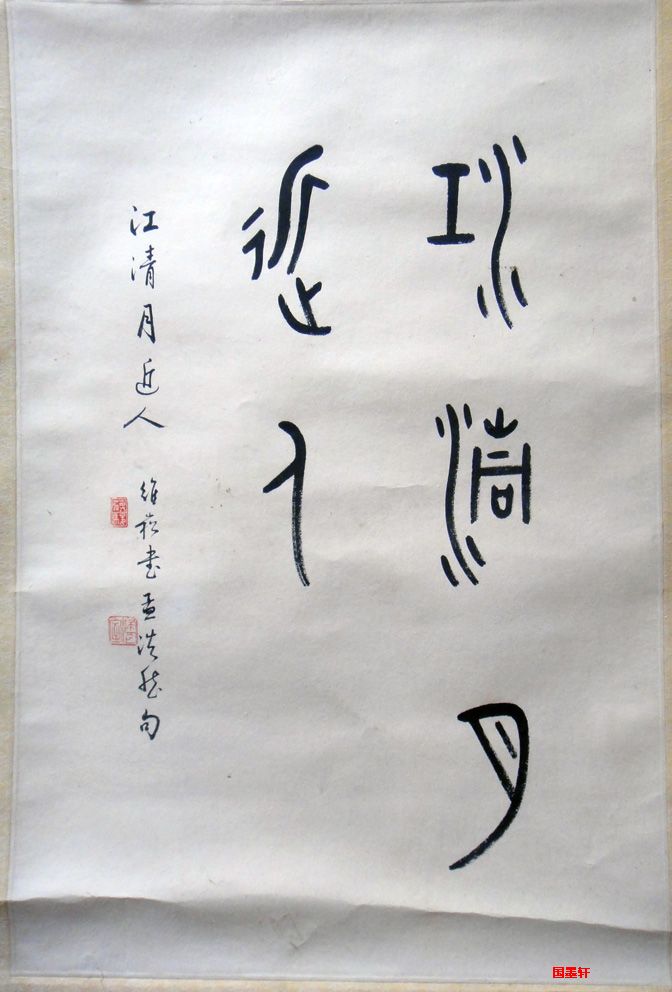 江清月
近人
江清月近人 维崧书孟浩然句
国墨轩